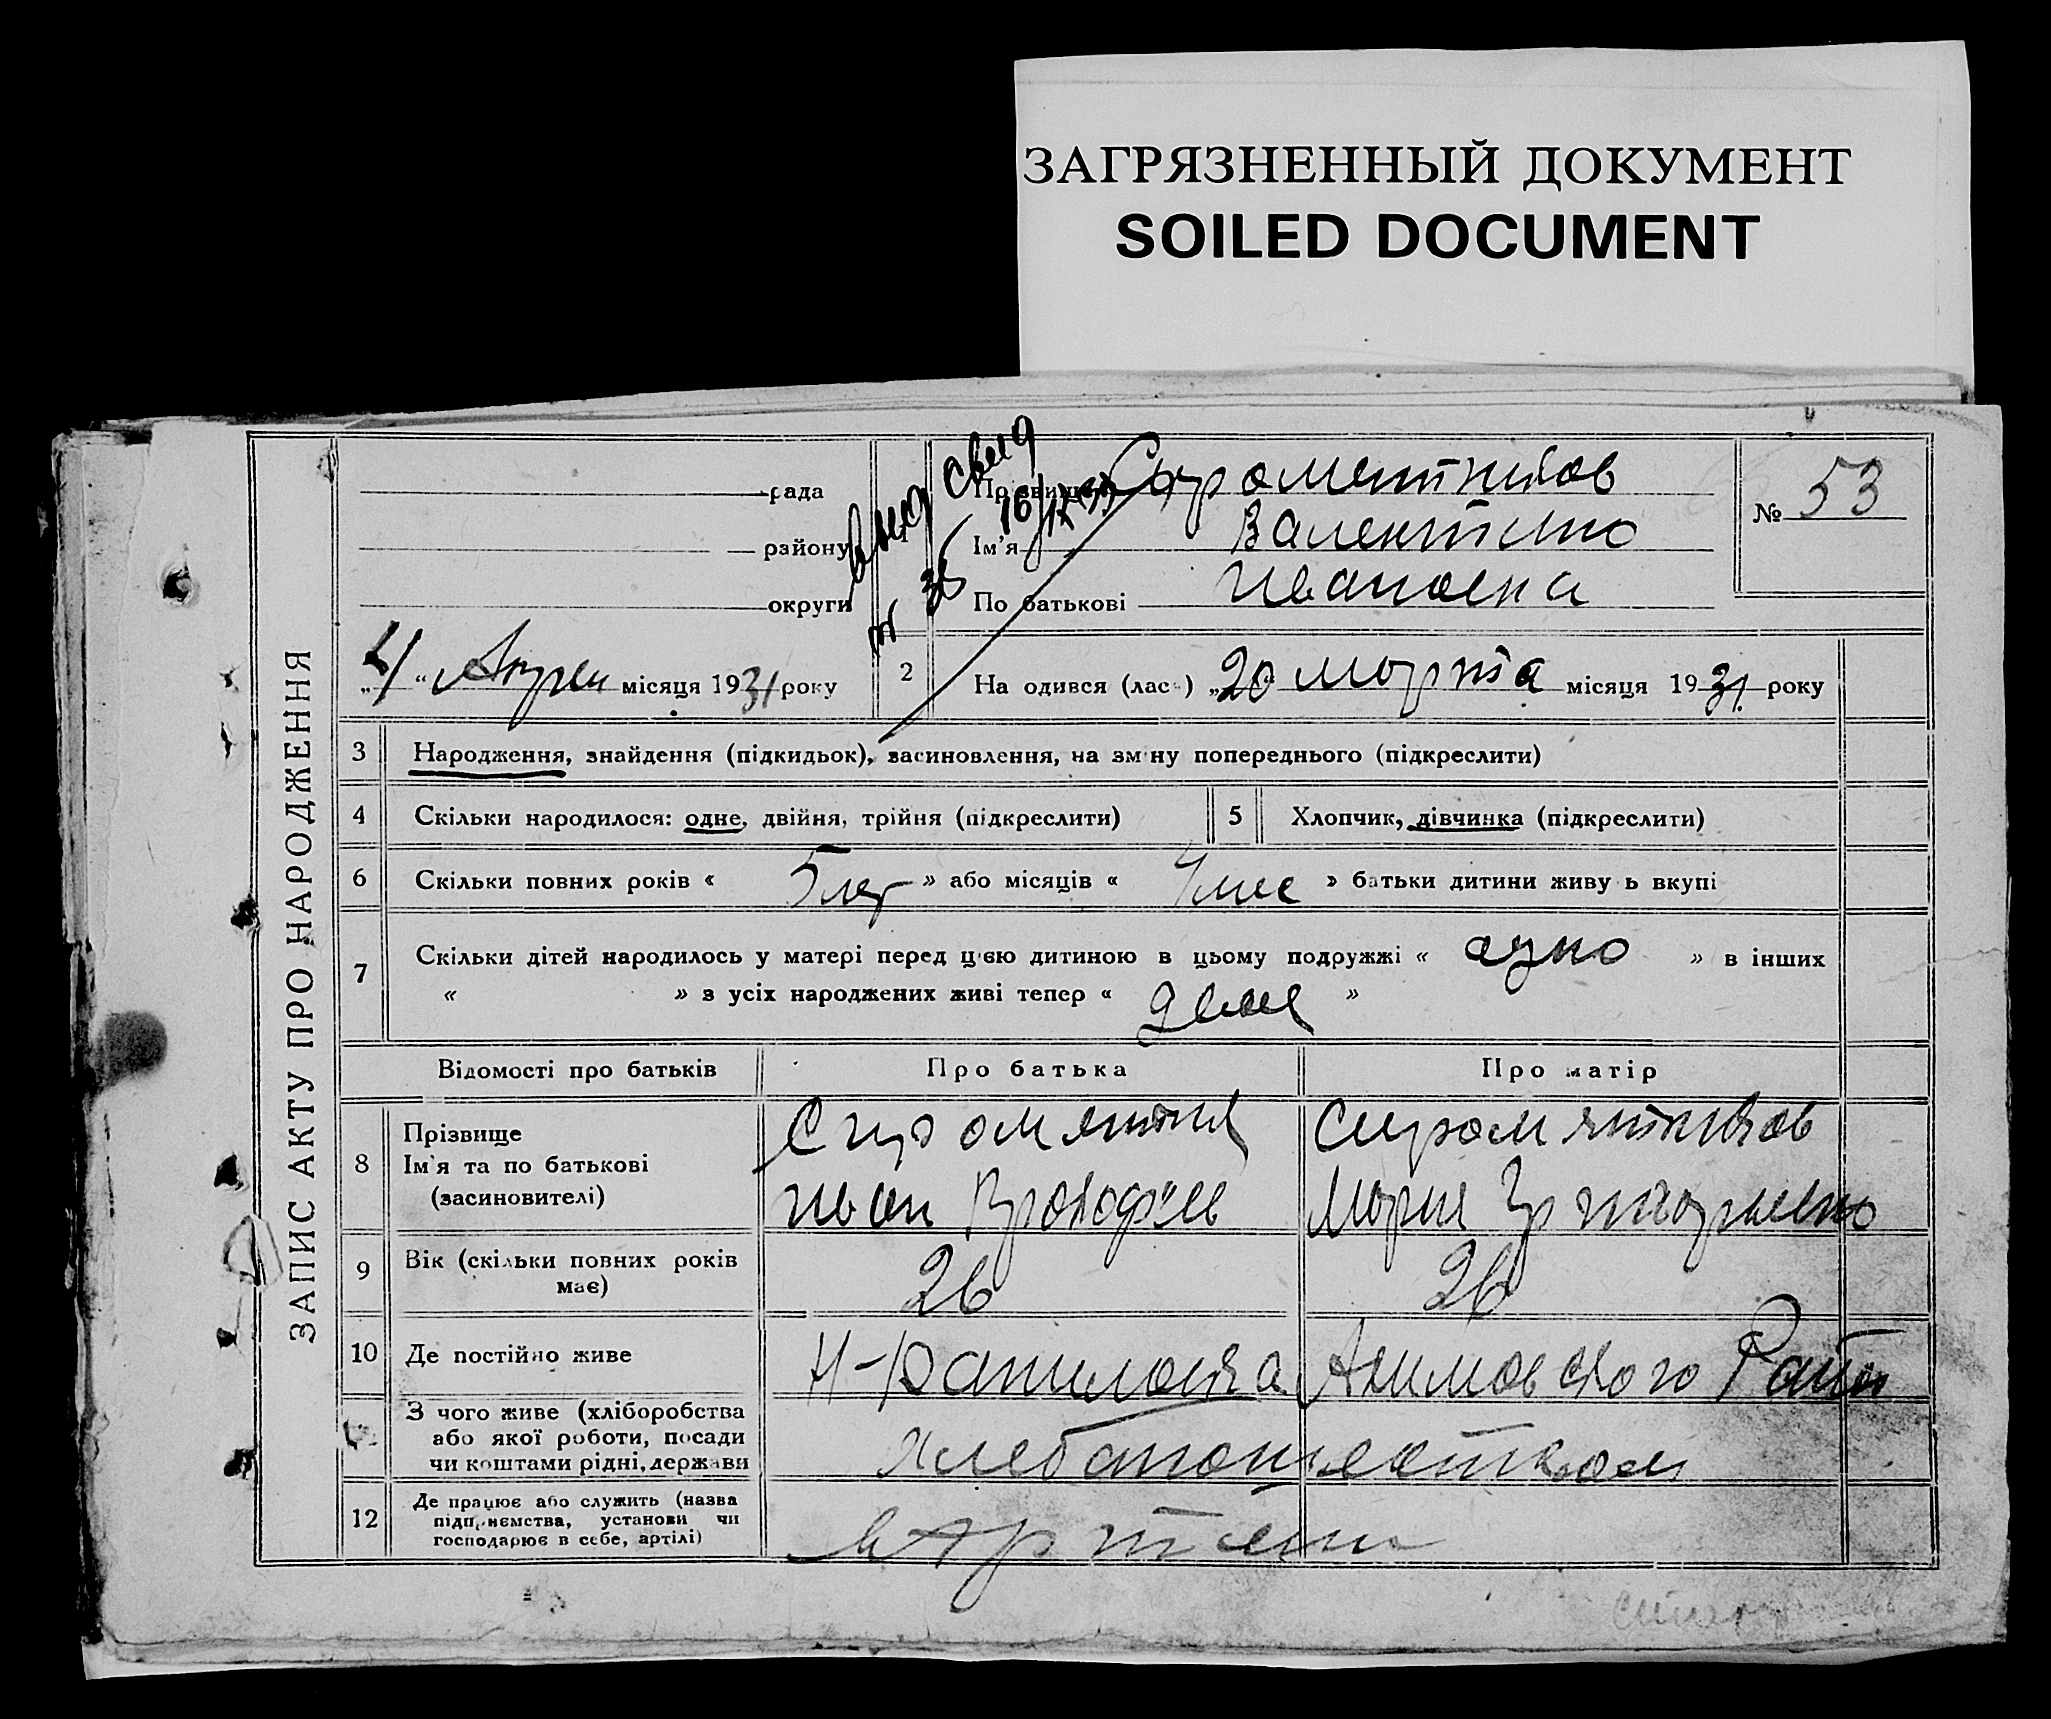 ЗАГРЯЗНЕННЫЙ ДОКУМЕНТ
SOILED DOCUMENT
ЗАПИС АКТУ ПРО НАРОДЖЕННЯ
рада
району
округи
выд свид
16/IX 35
Прізвище
Ім'я Валентино
По батькові Ивановна
№ 53
„4“ Апрел місяця 1931 року
2 На одився (лась) „20 марта місяця 1931. року
3 Народження, знайдення (підкидьок), засиновлення, на зміну попереднього (підкреслити)
4 Скільки народилося: одне, двійня, трійня (підкреслити)
5 Хлопчик, дівчинка (підкреслити)
6 Скільки повних років « 5 лет » або місяців « 4 мес » батьки дитини живу ь вкупі
7 Скільки дітей народилось у матері перед цією дитиною в цьому подружжі « одно » в інших
« » з усіх народжених живі тепер « двое »
Відомості про батьків Про батька Про матір
8 Прізвище
Ім'я та по батькові
(засиновителі)
Сыромятник
Иван Прокофев
Сыромятников
Мария Григорьевно
9 Вік (скільки повних років
має)
26 26
10 Де постійно живе Акимовского Район
З чого живе (хліборобства
або якої роботи, посади
чи коштами рідні, держави
хлебопашеством
12 Де працює або служить (назва
підприємства, установи чи
господарює в себе, артілі)
в Артели